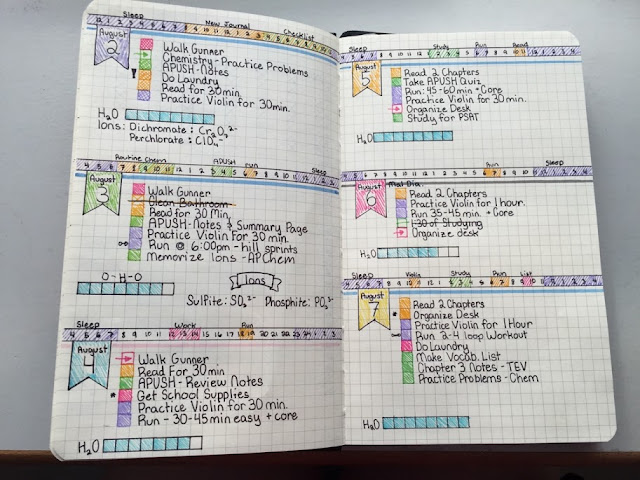 Sleep New Journal Checklist
August
2
Walk Gunner
Chemistry-Practice Problems
! APUSH-Notes
Do Laundry
Read for 30 min.
Practice Violin for 30 min.
H2O
Ions: Dichromate: Cr2O7 2-
Perchlorate: ClO4 -
Routine Chem APUSH run Sleep
August
3
Walk Gunner
Clean Bathroom
Read for 30 Min.
APUSH-Notes & Summary Page
Practice Violin for 30 min.
Run @ 6:00pm-hill sprints
Memorize Ions-APChem
O-H-O
Ions
Sulfite: SO3 2- Phosphite: PO3 3-
Sleep Work Run
August
4
Walk Gunner
Read For 30 min
APUSH-Review Notes
* Get School Supplies
Practice Violin for 30 min.
Run - 30-45 min easy + core
H2O
Sleep Study Run Read
August
5
Read 2 Chapters
Take APUSH Quiz
Run: 45-60 min + Core
Practice Violin for 30 min.
Organize Desk
Study for PSAT
H2O
Run Sleep
August
6
Read 2 Chapters
Practice Violin for 1 hour.
Run 35-45 min. + Core
1:30 of Studying
Organize desk
H2O
Sleep Violin Study Run List
August
7
Read 2 Chapters
* Organize Desk
Practice Violin for 1 Hour
Run 2-4 loop Workout
Do Laundry
Make Vocab. List
Chapter 3 Notes - TEV
Practice Problems - Chem
H2O